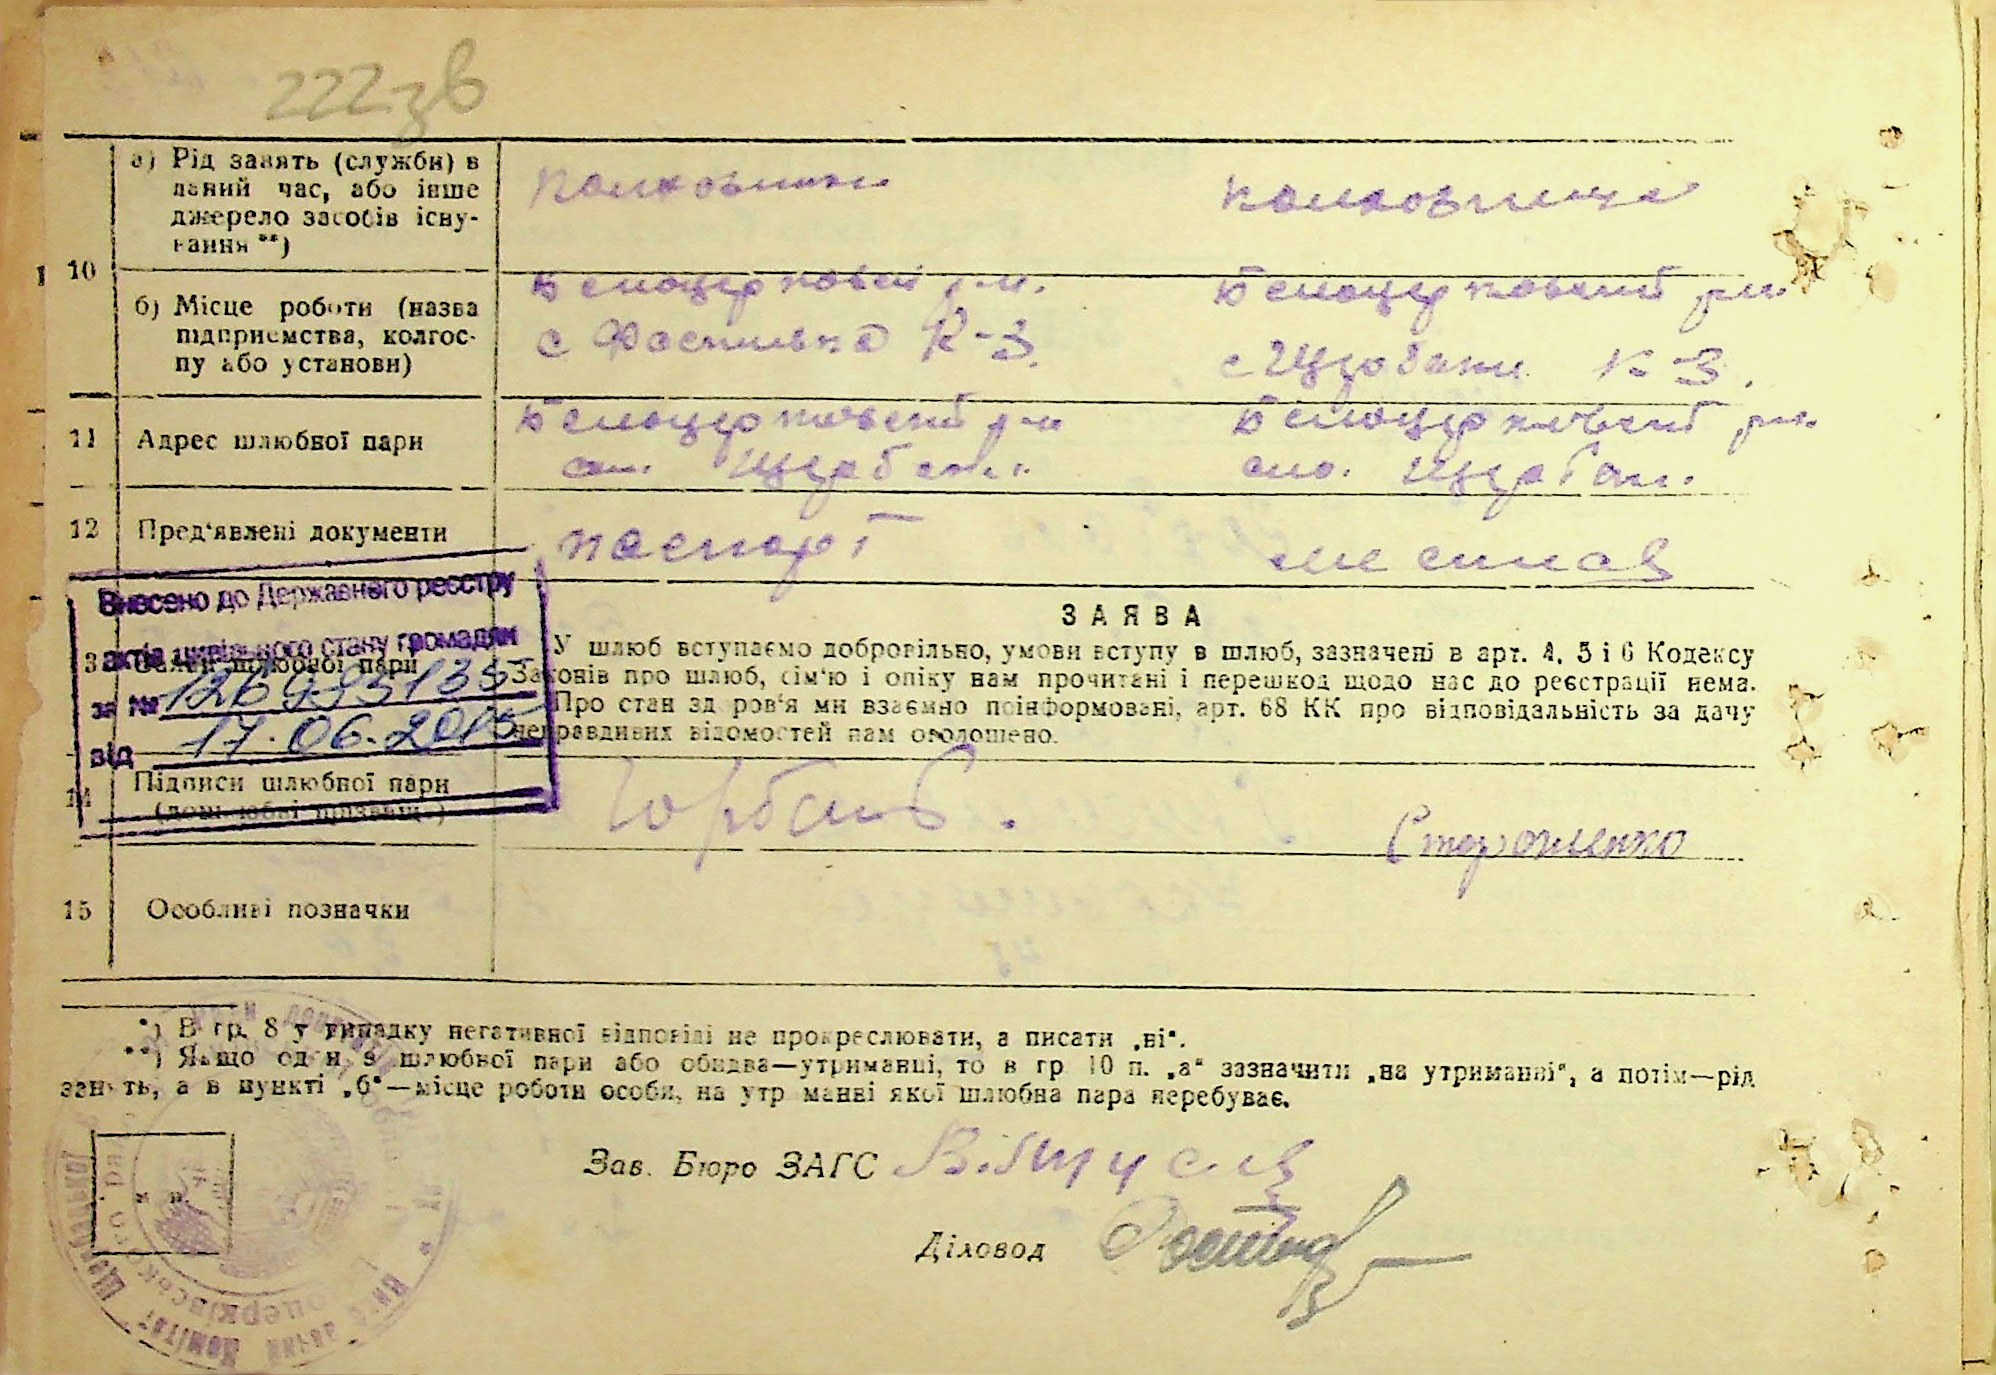 222зв
10
а) Рід занять (служби) в
даний час, або інше
джерело засобів існу-
вання **)
колховник
колховница
б) Місце роботи (назва
підприємства, колгос-
пу або установи)
Белоцерковский р-н.
с К-З.
Белоцерковский р-н.
с К-З.
11 Адрес шлюбної пари
Белоцерковский р-н
Белоцерковский р-н.
12 Пред'явлені документи
паспорт
не
Внесено до Державного реєстру
актів цивільного стану громадян
за №
від 17.06.2015
шлюбної пари
ЗАЯВА
У шлюб вступаємо добровільно, умови вступу в шлюб, зазначені в арт. 4, 5 і 6 Кодексу
Законів про шлюб, сім'ю і опіку нам прочитані і перешкод щодо нас до реєстрації нема.
Про стан здоров'я ми взаємно поінформовані, арт. 68 КК про відповідальність за дачу
неправдивих відомостей нам оголошено.
14 Підписи шлюбної пари
(дошлюбні прізвища)
Горбань.
Стороженко
15 Особливі позначки
*) В гр. 8 у випадку негативної відповіді не прокреслювати, а писати „ні“.
**) Якщо один з шлюбної пари або обидва—утриманці, то в гр 10 п. „а“ зазначити „на утриманні“, а потім—рід
занять, а в пункті „б“—місце роботи особи, на утриманні якої шлюбна пара перебуває.
Зав. Бюро ЗАГС
Діловод